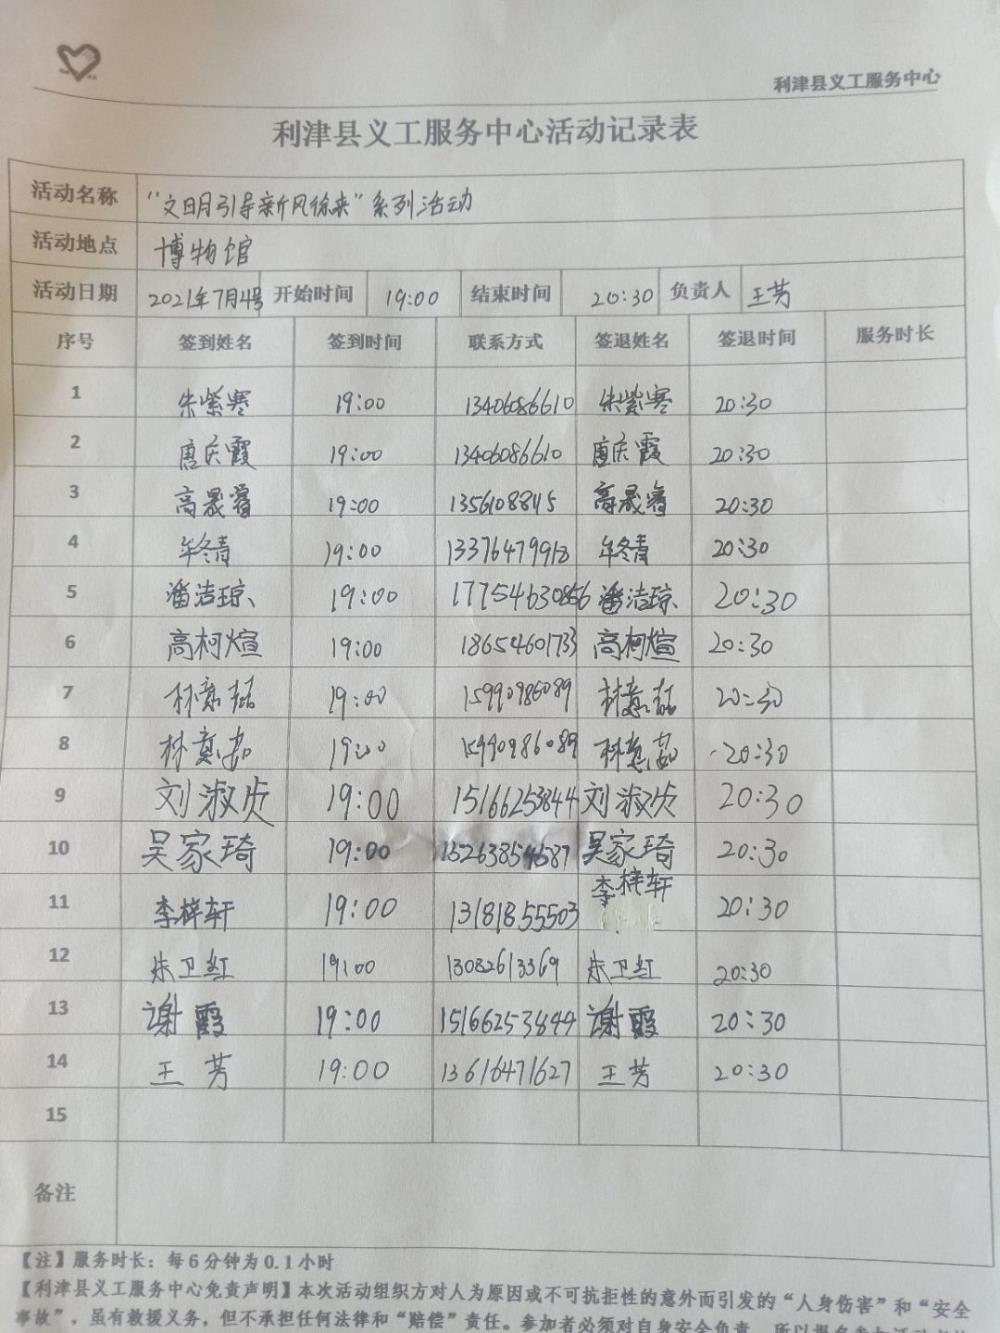 利津县义工服务中心
利津县义工服务中心活动记录表
活动名称 “文明引导新风徐来”系列活动
活动地点 博物馆
活动日期 2021年7月4号 开始时间 19:00 结束时间 20:30 负责人 王芳
序号 签到姓名 签到时间 联系方式 签退姓名 签退时间 服务时长
1 朱紫骞 19:00 13406086610 朱紫骞 20:30
2 唐庆霞 19:00 13406086610 唐庆霞 20:30
3 高晟睿 19:00 1356108845 高晟睿 20:30
4 牟冬青 19:00 13376479918 牟冬青 20:30
5 潘洁琼 19:00 17754630856 潘洁琼 20:30
6 高柯煊 19:00 18654601733 高柯煊 20:30
7 林意 19:00 15990986089 林意 20:30
8 林意茹 19:00 15990986089 林意茹 20:30
9 刘淑贞 19:00 15166253844 刘淑贞 20:30
10 吴家琦 19:00 15263854587 吴家琦 20:30
11 李梓轩 19:00 13181855503 李梓轩 20:30
12 朱卫红 19:00 13082613369 朱卫红 20:30
13 谢霞 19:00 15166253844 谢霞 20:30
14 王芳 19:00 13616471627 王芳 20:30
15
备注
【注】服务时长：每6分钟为0.1小时
【利津县义工服务中心免责声明】本次活动组织方对人为原因或不可抗拒性的意外而引发的“人身伤害”和“安全
事故”，虽有救援义务，但不承担任何法律和“赔偿”责任。参加者必须对自身安全负责，所以报名参与活动